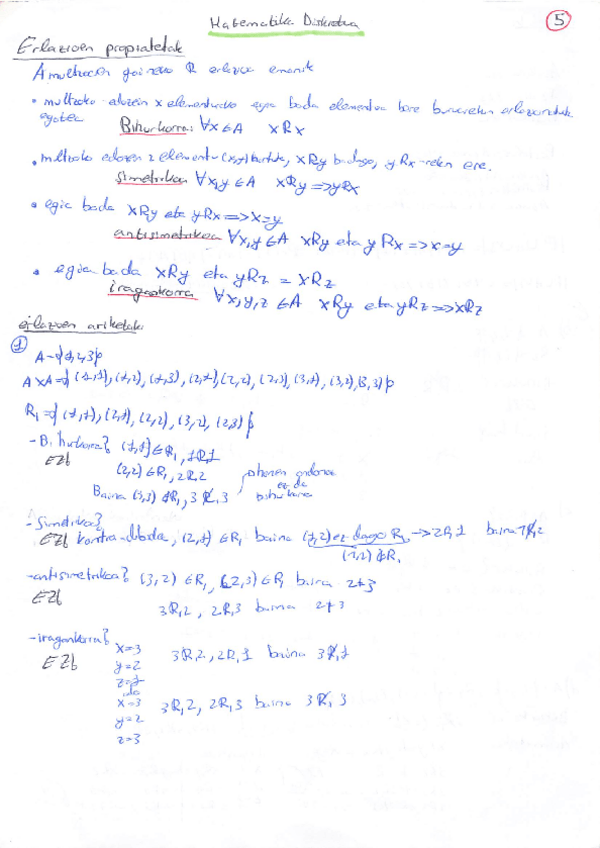 Matematika Diskretua
5
Erlazioen propietateak
A multzoaren gaineko R erlazioa emanik
• multzoko edozein x elementurako egia bada elementua bere buruarekin erlazionatuta
egotea
Bihurkorra: ∀x∈A xRx
• multzoko edozein 2 elementu (x,y) hartuta, xRy badago, yRx-rekin ere.
Simetrikoa ∀x,y∈A xRy=>yRx
• egia bada xRy eta yRx=>x=y
antisimetrikoa ∀x,y∈A xRy eta yRx=>x=y
• egia bada xRy eta yRz = xRz
iragankorra ∀x,y,z∈A xRy eta yRz=>xRz
erlazioen ariketak
1
A={1,2,3}
A×A={(1,1),(1,2),(1,3),(2,1),(2,2),(2,3),(3,1),(3,2),(3,3)}
R₁={(1,1),(2,1),(2,2),(3,2),(2,3)}
-Bihurkorra? (1,1)∈R₁, 1R₁1
EZ! (2,2)∈R₁, 2R₂2
Baina (3,3)∉R₁, 3R̸₁3
ez da
bihurkorra
-Simetrikoa?
EZ! kontra-adibidea, (2,1)∈R₁ baina (1,2) ez dago R₁ -> 2R₁1 baina 1R̸₁2
(1,2)∉R₁
-antisimetrikoa? (3,2)∈R₁, (2,3)∈R₁ baina 2≠3
EZ!
3R₁2, 2R₁3 baina 2≠3
-iragankorra?
EZ!
x=3
y=2 3R₁2, 2R₁1 baina 3R̸₁1
z=1
edo
x=3 3R₁2, 2R₁3 baina 3R̸₁3
y=2
z=3